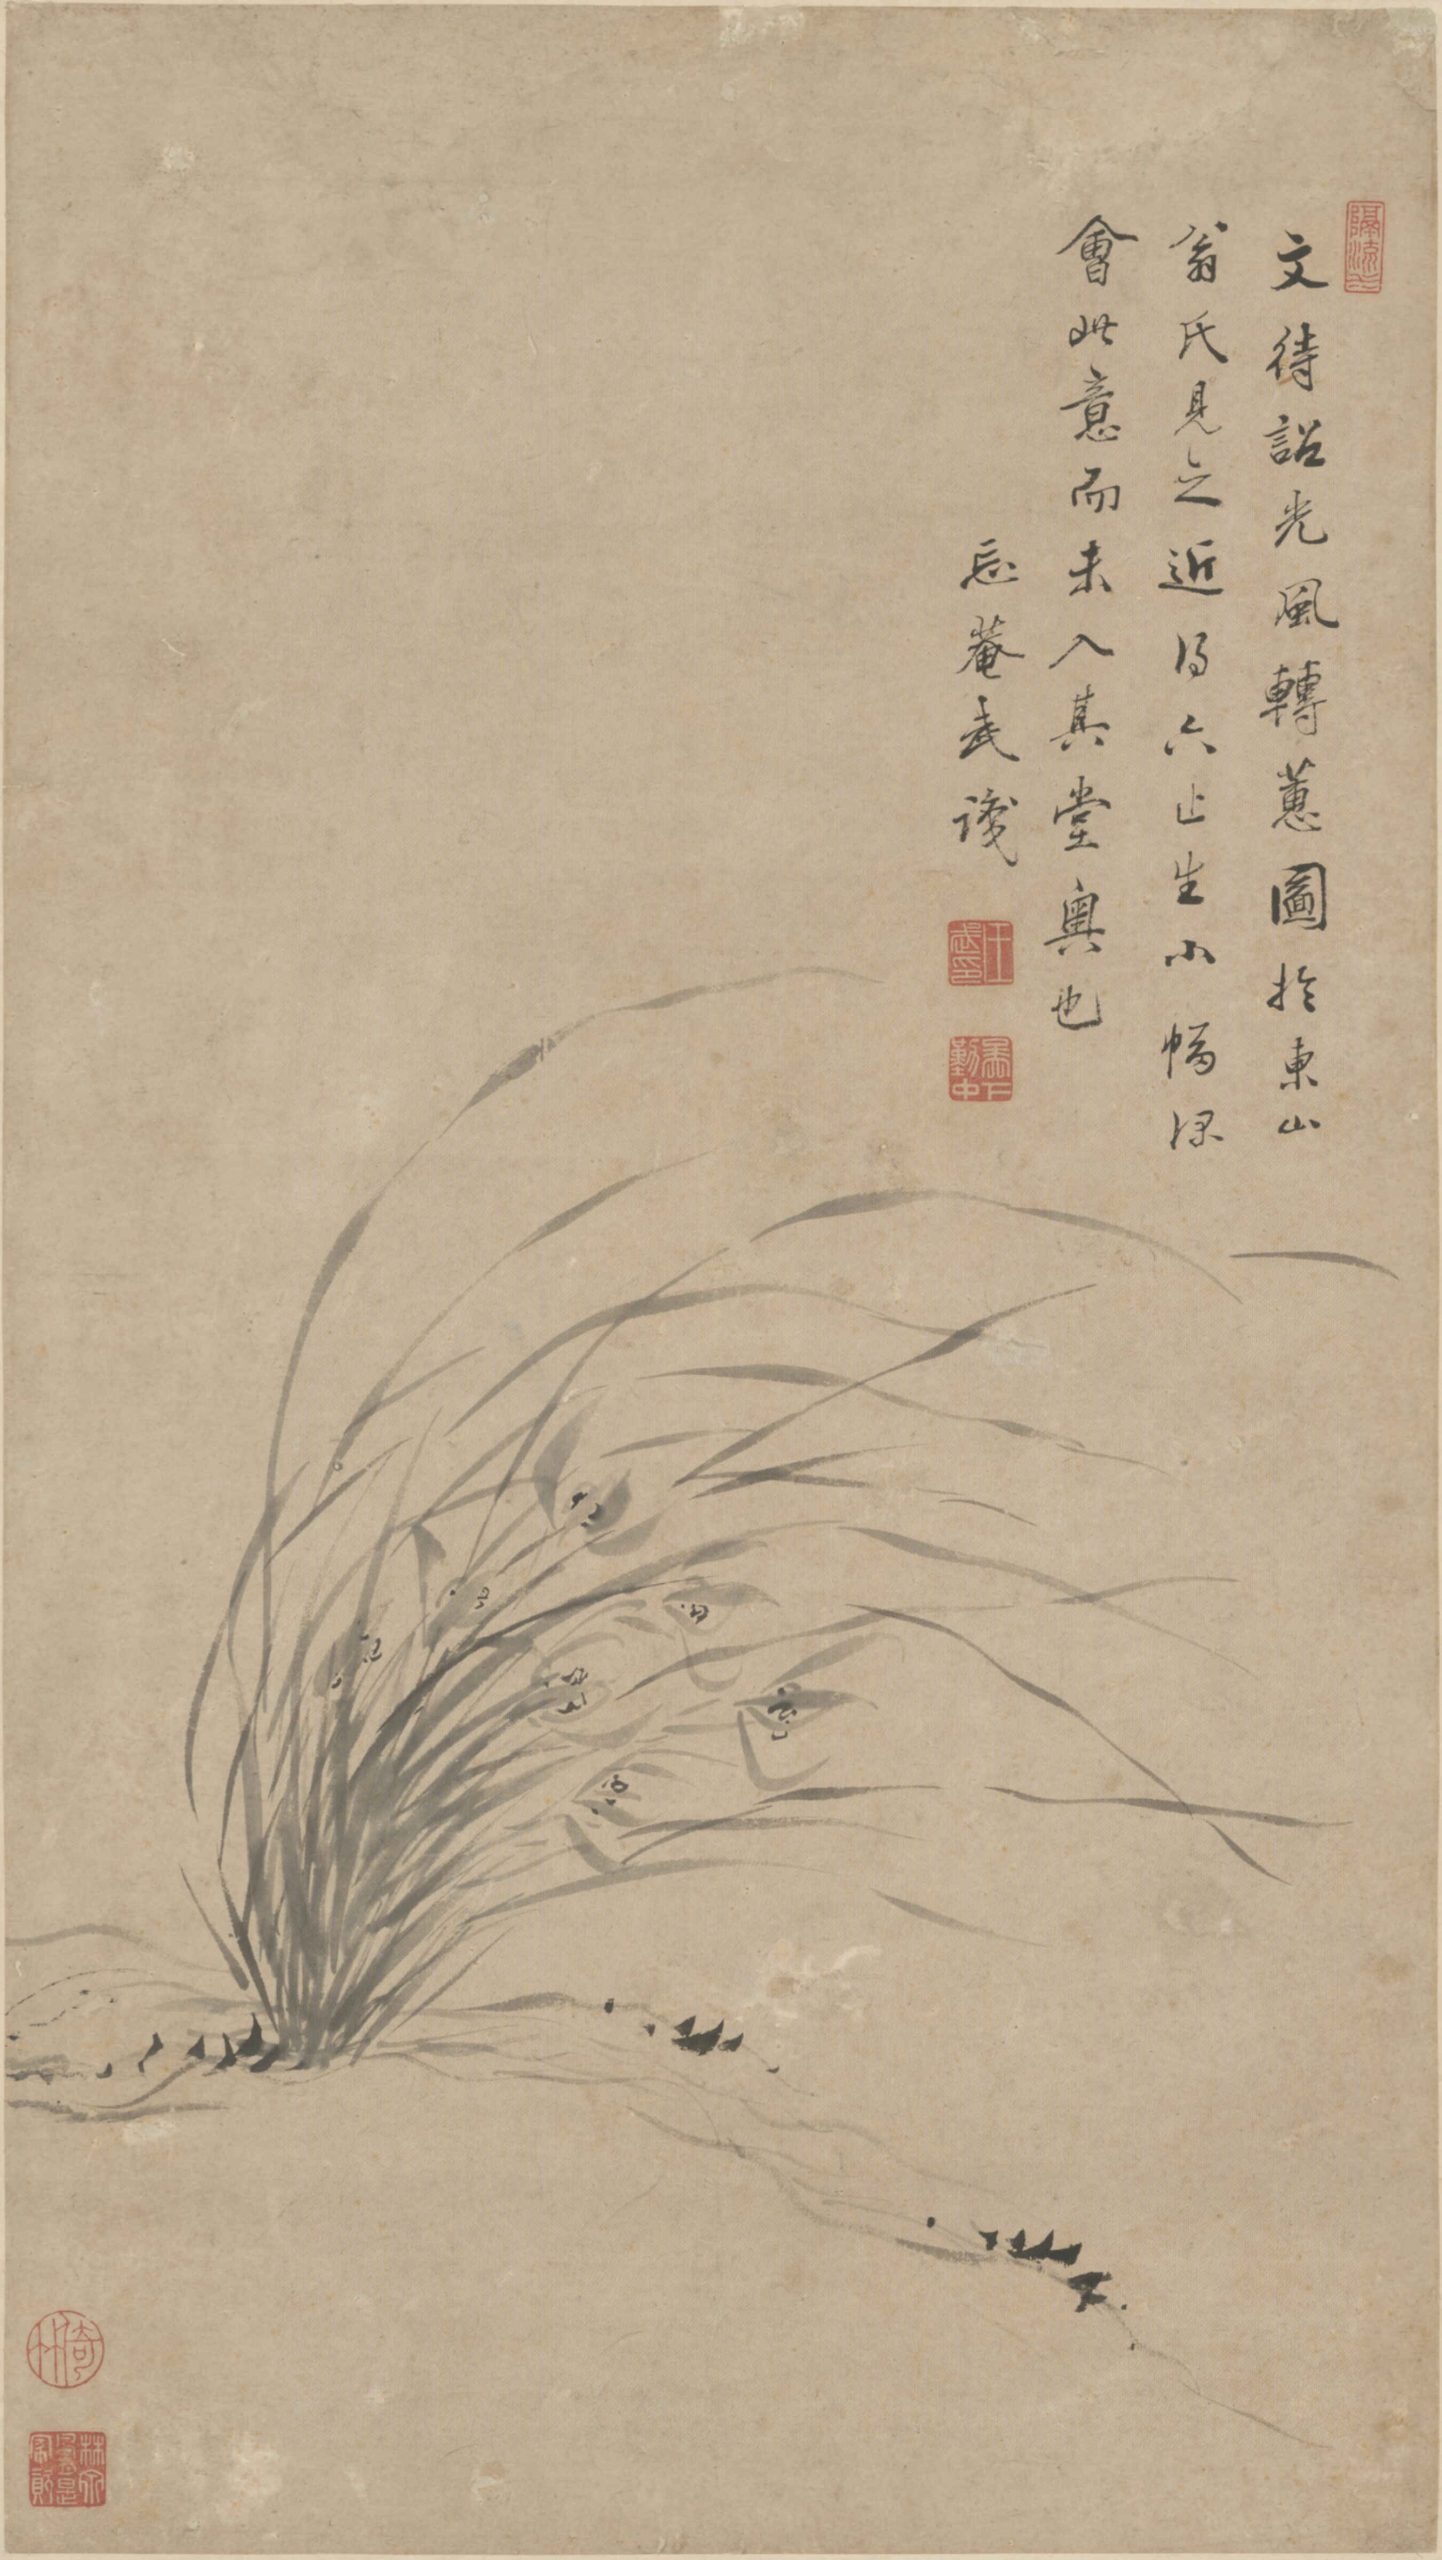 文待詔光風轉蕙圖於東山
翁氏見之近得六止生小幅深
會此意而未入其堂奧也
忘菴武識
王武之印
勤中